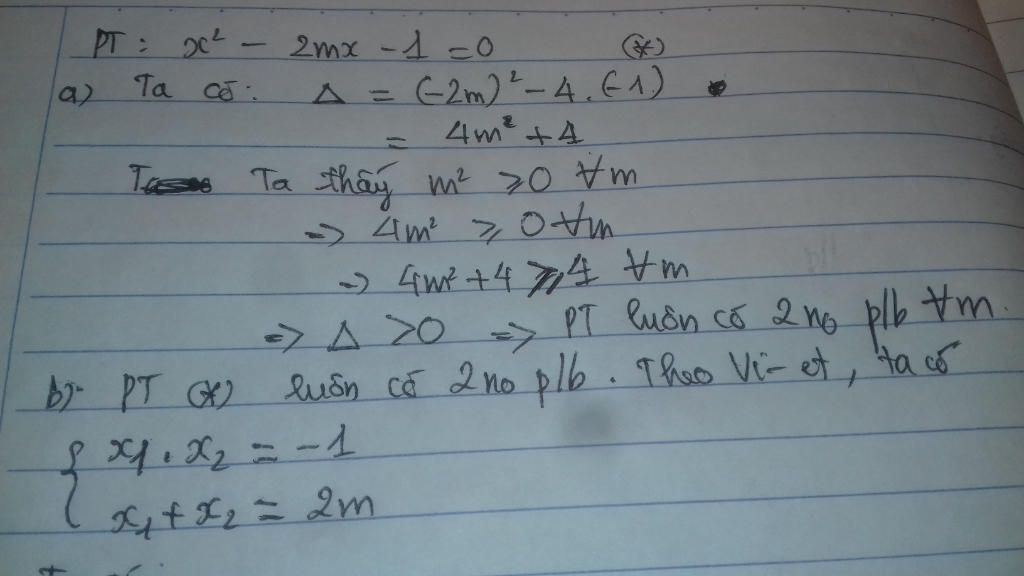 PT: x² - 2mx - 1 = 0 (*)
a) Ta có: Δ = (-2m)² - 4.(-1)
= 4m² + 4
Ta thấy m² ≥ 0 ∀m
=> 4m² ≥ 0 ∀m
=> 4m² + 4 ≥ 4 ∀m
=> Δ > 0 => PT luôn có 2 no p/b ∀m.
b) PT (*) luôn có 2 no p/b. Theo Vi-et, ta có
{ x₁ . x₂ = -1
x₁ + x₂ = 2m